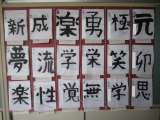 新 成 楽 勇 極 元
夢 流 学 栄 笑 卯
楽 性 覚 無 学